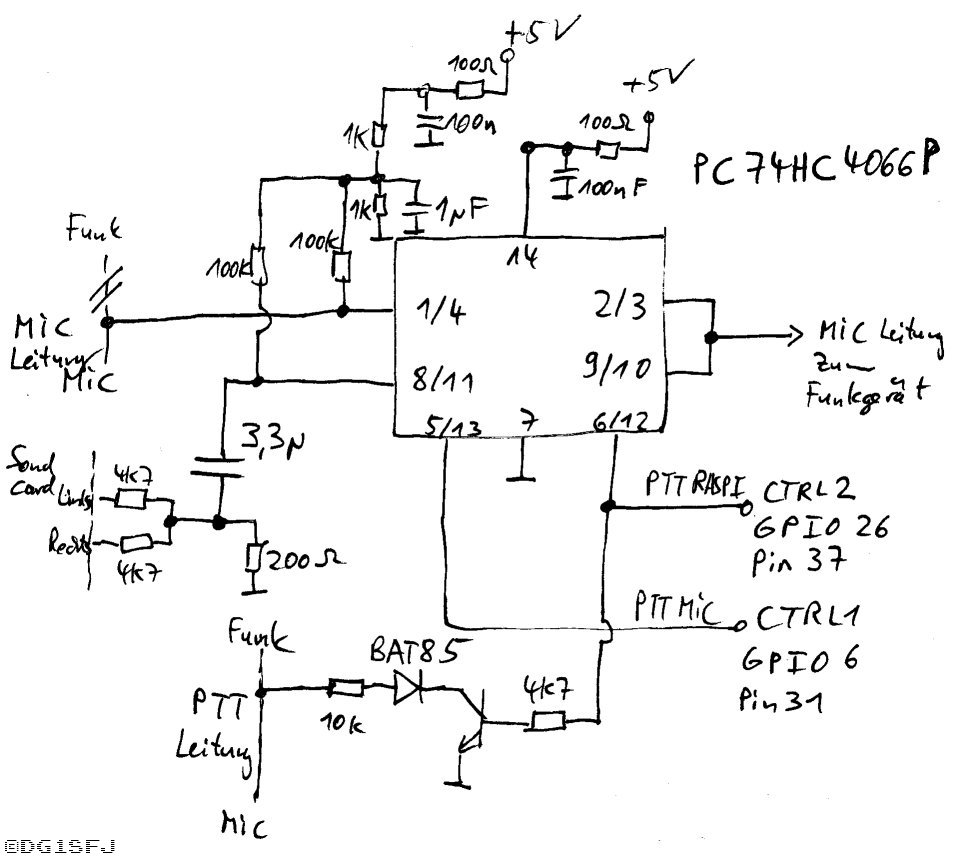 +5V
100Ω
+5V
100n
100Ω
1K
PC74HC4066P
100nF
1K
1µF
Funk
100K
14
100K
1/4
2/3
MiC
Leitung
MiC
MiC Leitung
zum
Funkgerät
8/11
9/10
5/13
7
6/12
3,3µ
Sond
card
Links
4k7
PTT RASPI
CTRL2
GPIO 26
Pin 37
Rechts
4k7
200Ω
PTT MiC
CTRL1
GPIO 6
Pin 31
Funk
BAT85
4k7
PTT
Leitung
10k
MiC
©DG1SFJ